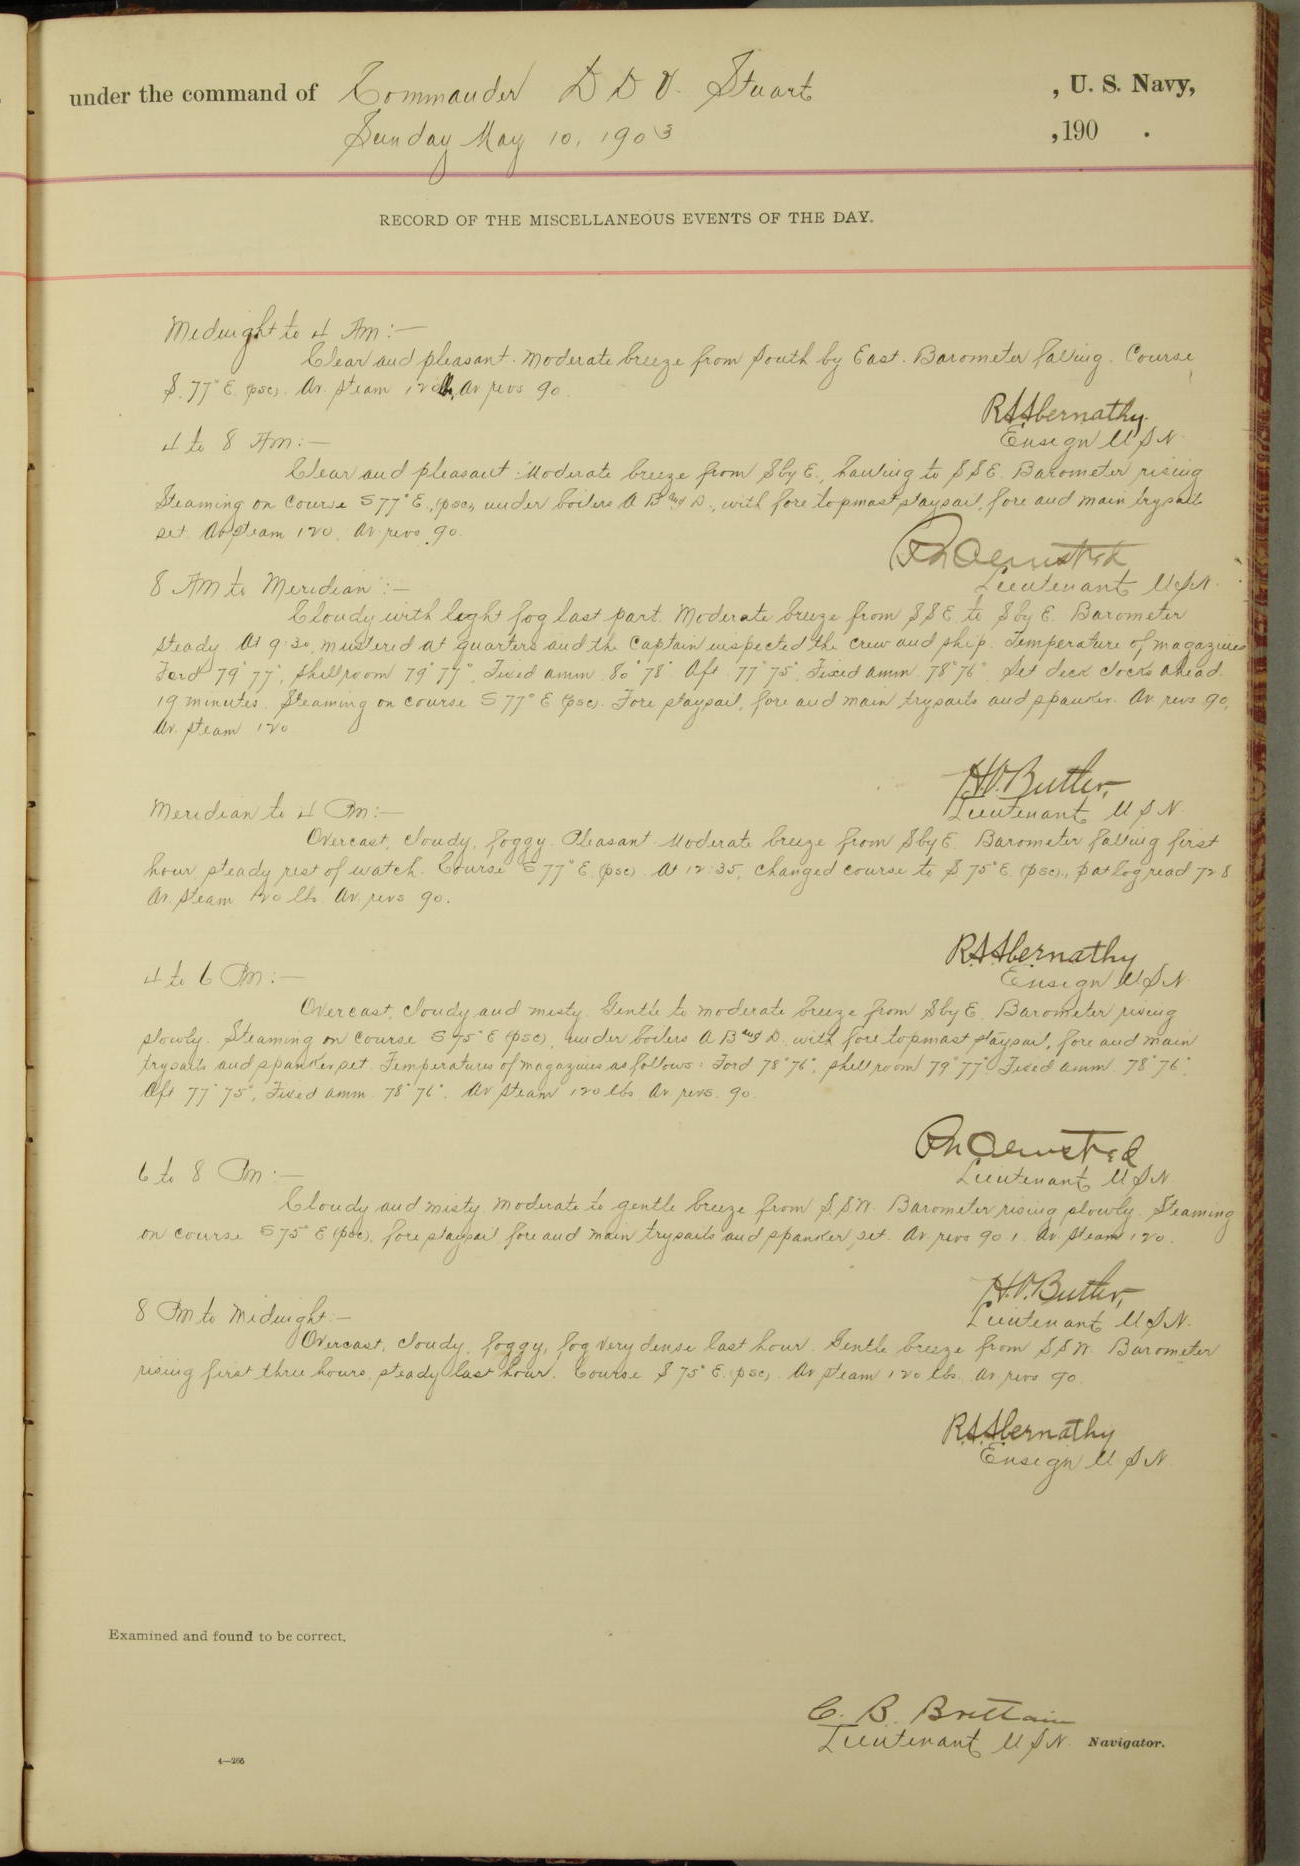 under the command of Commander D D V. Stuart , U. S. Navy,
Sunday May 10, 1903 ,190 .
RECORD OF THE MISCELLANEOUS EVENTS OF THE DAY.
Midnight to 4 Am:—
Clear and pleasant. Moderate breeze from South by East. Barometer falling. Course
S. 77° E. (psc). Av. steam 120, Av revs 90.
R.S.Abernathy.
Ensign U S N.
4 to 8 Am:—
Clear and pleasant. Moderate breeze from S by E., hauling to S S E. Barometer rising
Steaming on course S 77° E., (psc), under boilers A B and D., with fore topmast staysail, fore and main trysails
set. Av steam 120. Av. revs. 90.
P N Olmsted
Lieutenant U S N.
8 AM to Meridian:—
Cloudy with light fog last part. Moderate breeze from S S E to S by E. Barometer
steady. At 9:30, mustered at quarters and the Captain inspected the crew and ship. Temperature of magazines
Ford 79° 77°, shellroom 79° 77°, Fixed amm. 80° 78°. Aft 77° 75°, Fixed amm. 78° 76°. Set deck clocks ahead
19 minutes. Steaming on course S 77° E (psc). Fore staysail, fore and main trysails and spanker. Av. revs 90,
Av. steam 120
H.V.Butler,
Lieutenant U S N.
Meridian to 4 Pm:—
Overcast, cloudy, foggy. Pleasant. Moderate breeze from S by E. Barometer falling first
hour steady rest of watch. Course S 77° E. (psc). At 12:35, changed course to S 75° E. (psc)., pat log read 72.8
Av. steam 120 lbs. Av. revs 90.
R.S.Abernathy
Ensign U S N.
4 to 6 Pm:—
Overcast, cloudy and misty. Gentle to moderate breeze from S by E. Barometer rising
slowly. Steaming on course S 75° E (psc), under boilers A B and D. with fore topmast staysail, fore and main
trysails and spanker set. Temperatures of magazines as follows: Ford 78° 76°, shell room 79° 77° Fixed amm. 78° 76°.
Aft 77° 75°, Fixed amm. 78° 76°. Av steam 120 lbs Av. revs. 90.
P N Olmsted
Lieutenant U S N.
6 to 8 Pm:—
Cloudy and misty. Moderate to gentle breeze from S.S.W. Barometer rising slowly. Steaming
on course S 75° E (psc), fore staysail fore and main trysails and spanker set. Av. revs 90.1. Av. steam 120.
H.V.Butler,
Lieutenant U S N.
8 Pm to Midnight:—
Overcast, cloudy, foggy, fog very dense last hour. Gentle breeze from S S W. Barometer
rising first three hours, steady last hour. Course S 75° E. (psc). Av steam 120 lbs. Av. revs 90.
R.S.Abernathy
Ensign U S N.
Examined and found to be correct,
C. B. Brittain
Lieutenant U S N. Navigator.
4—266